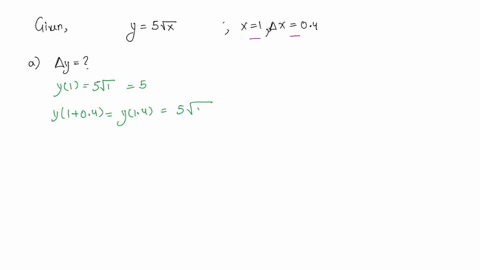 Given, y = 5√x ; x = 1, Δx = 0.4
a) Δy = ?
y(1) = 5√1 = 5
y(1+0.4) = y(1.4) = 5√